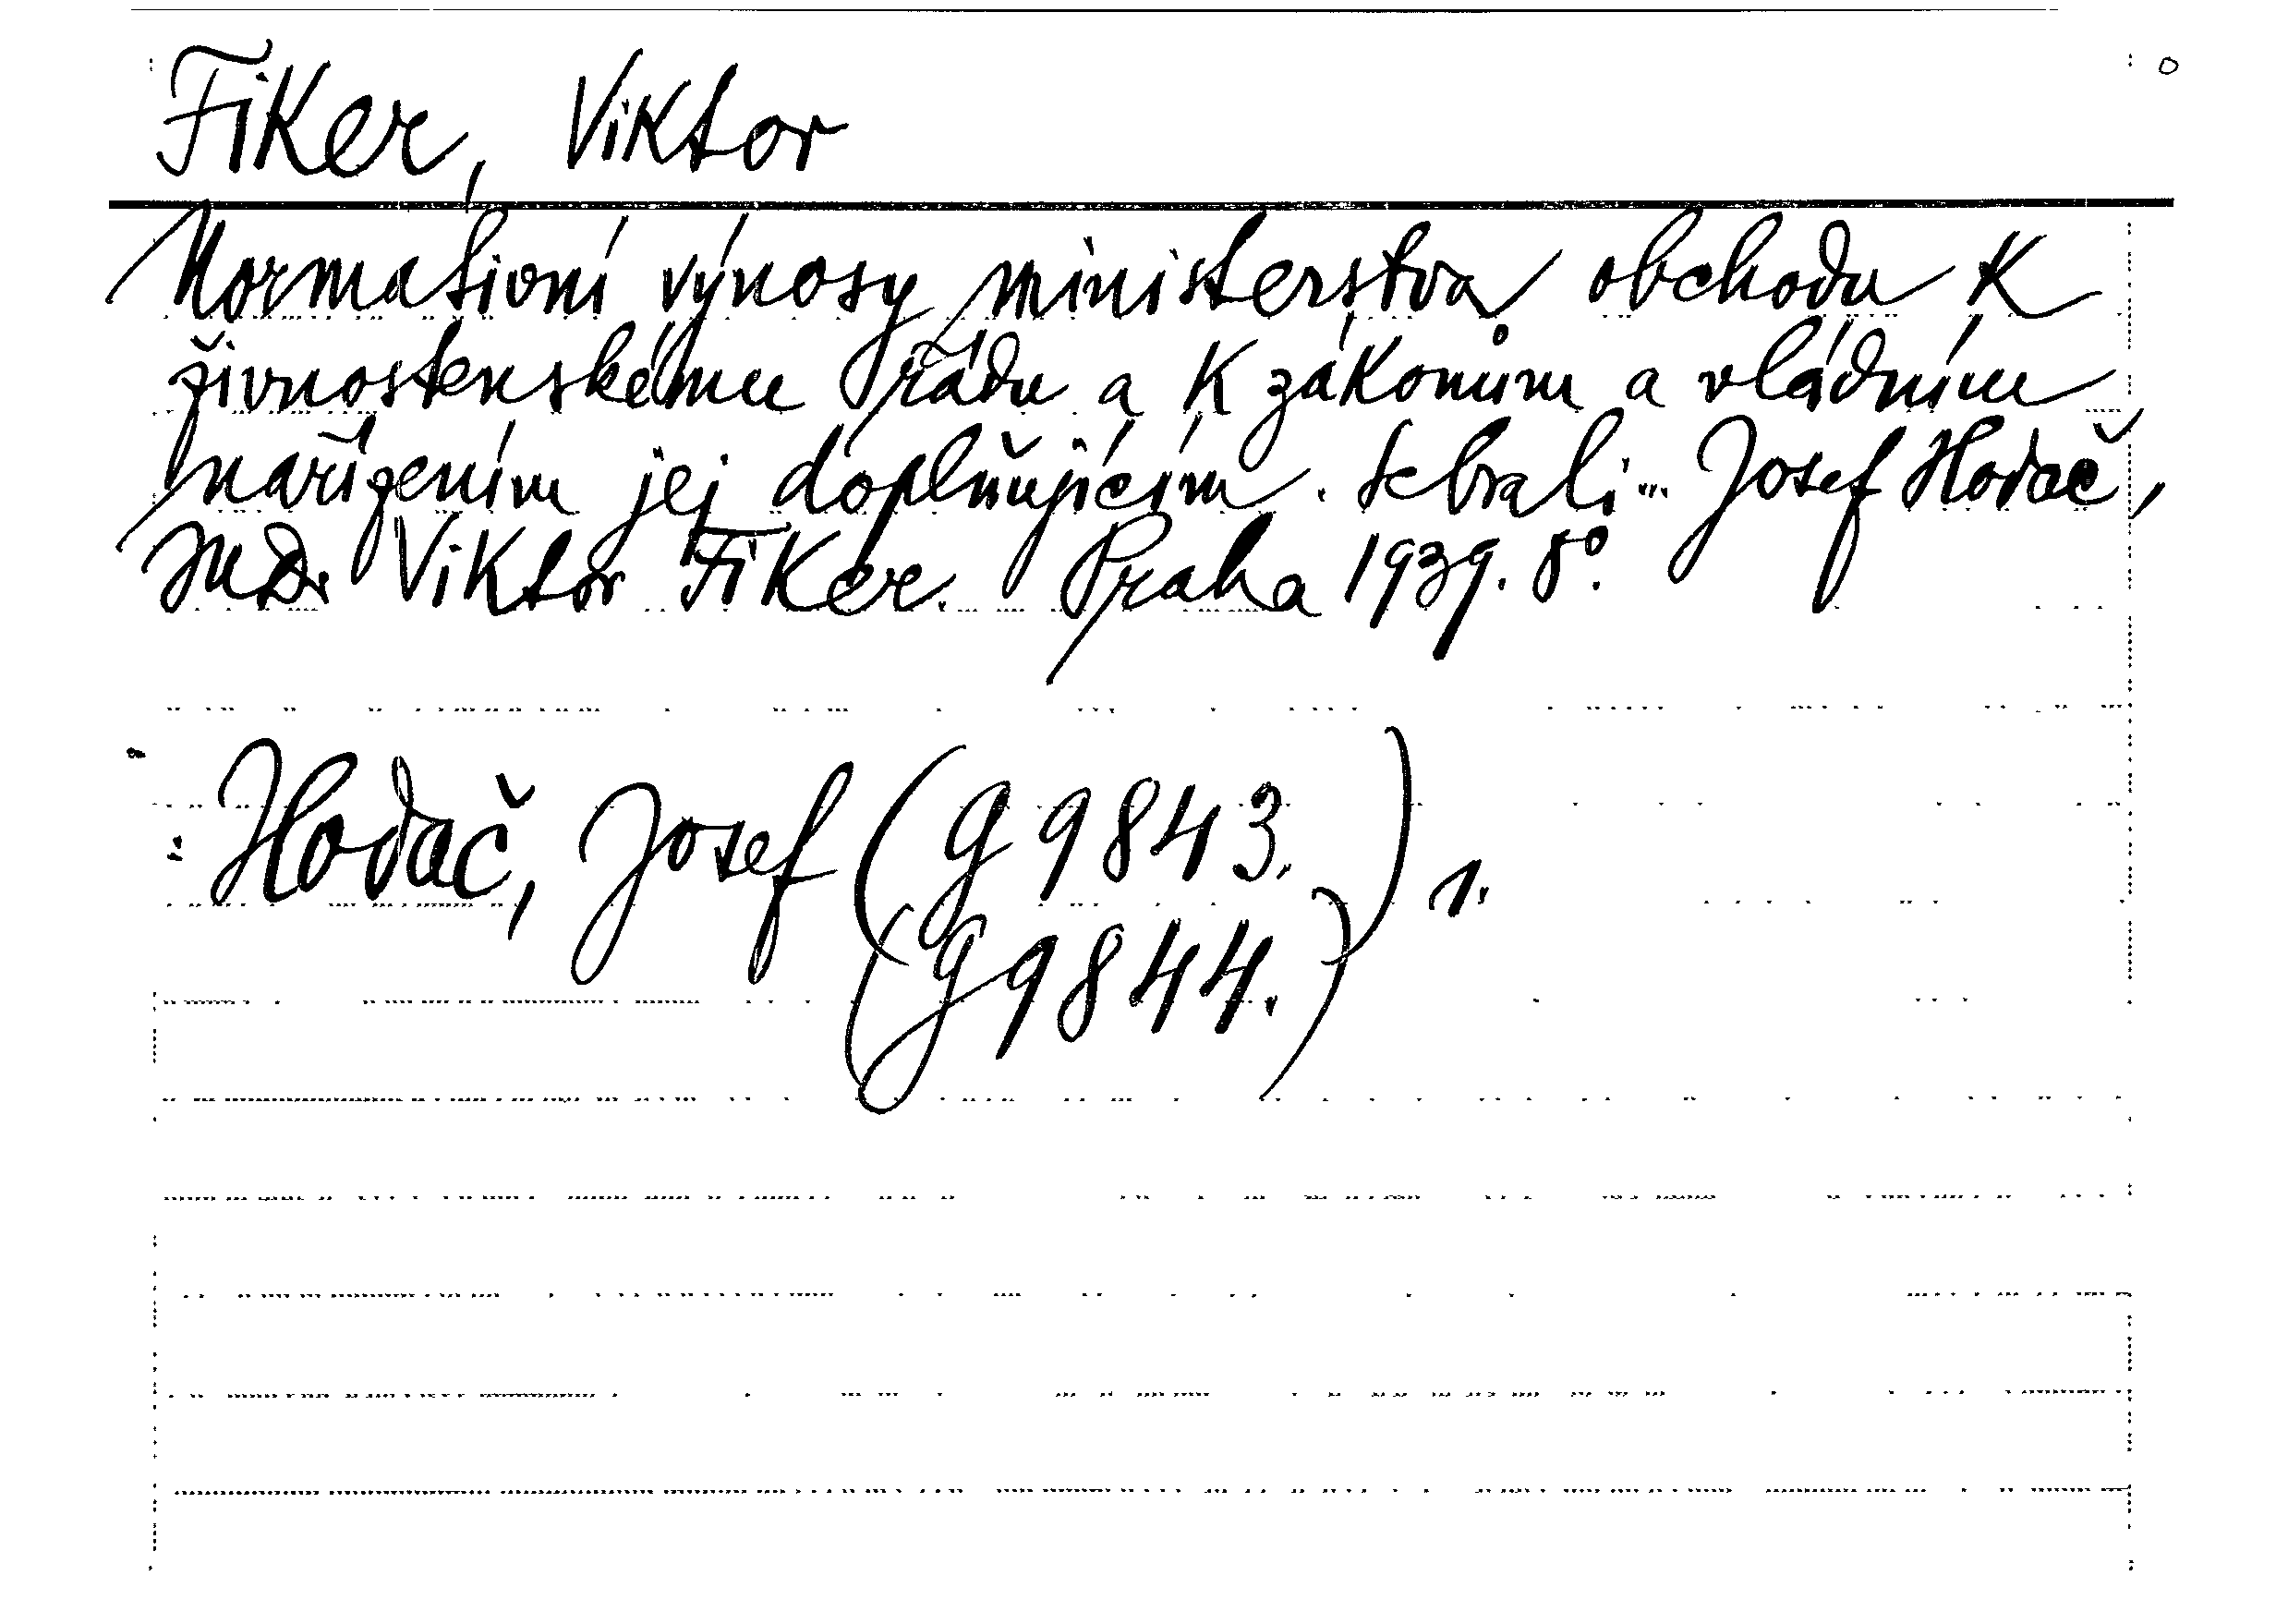 Fiker, Viktor
Normativní výnosy ministerstva obchodu k
živnostenskému řádu a k zákonům a vládním
nařízením jej doplňujícím. Sebrali... Josef Hodač,
JUDr Viktor Fiker. Praha 1939. 8°.
Hodač, Josef (g 9843.) 1.
(g 9844.)